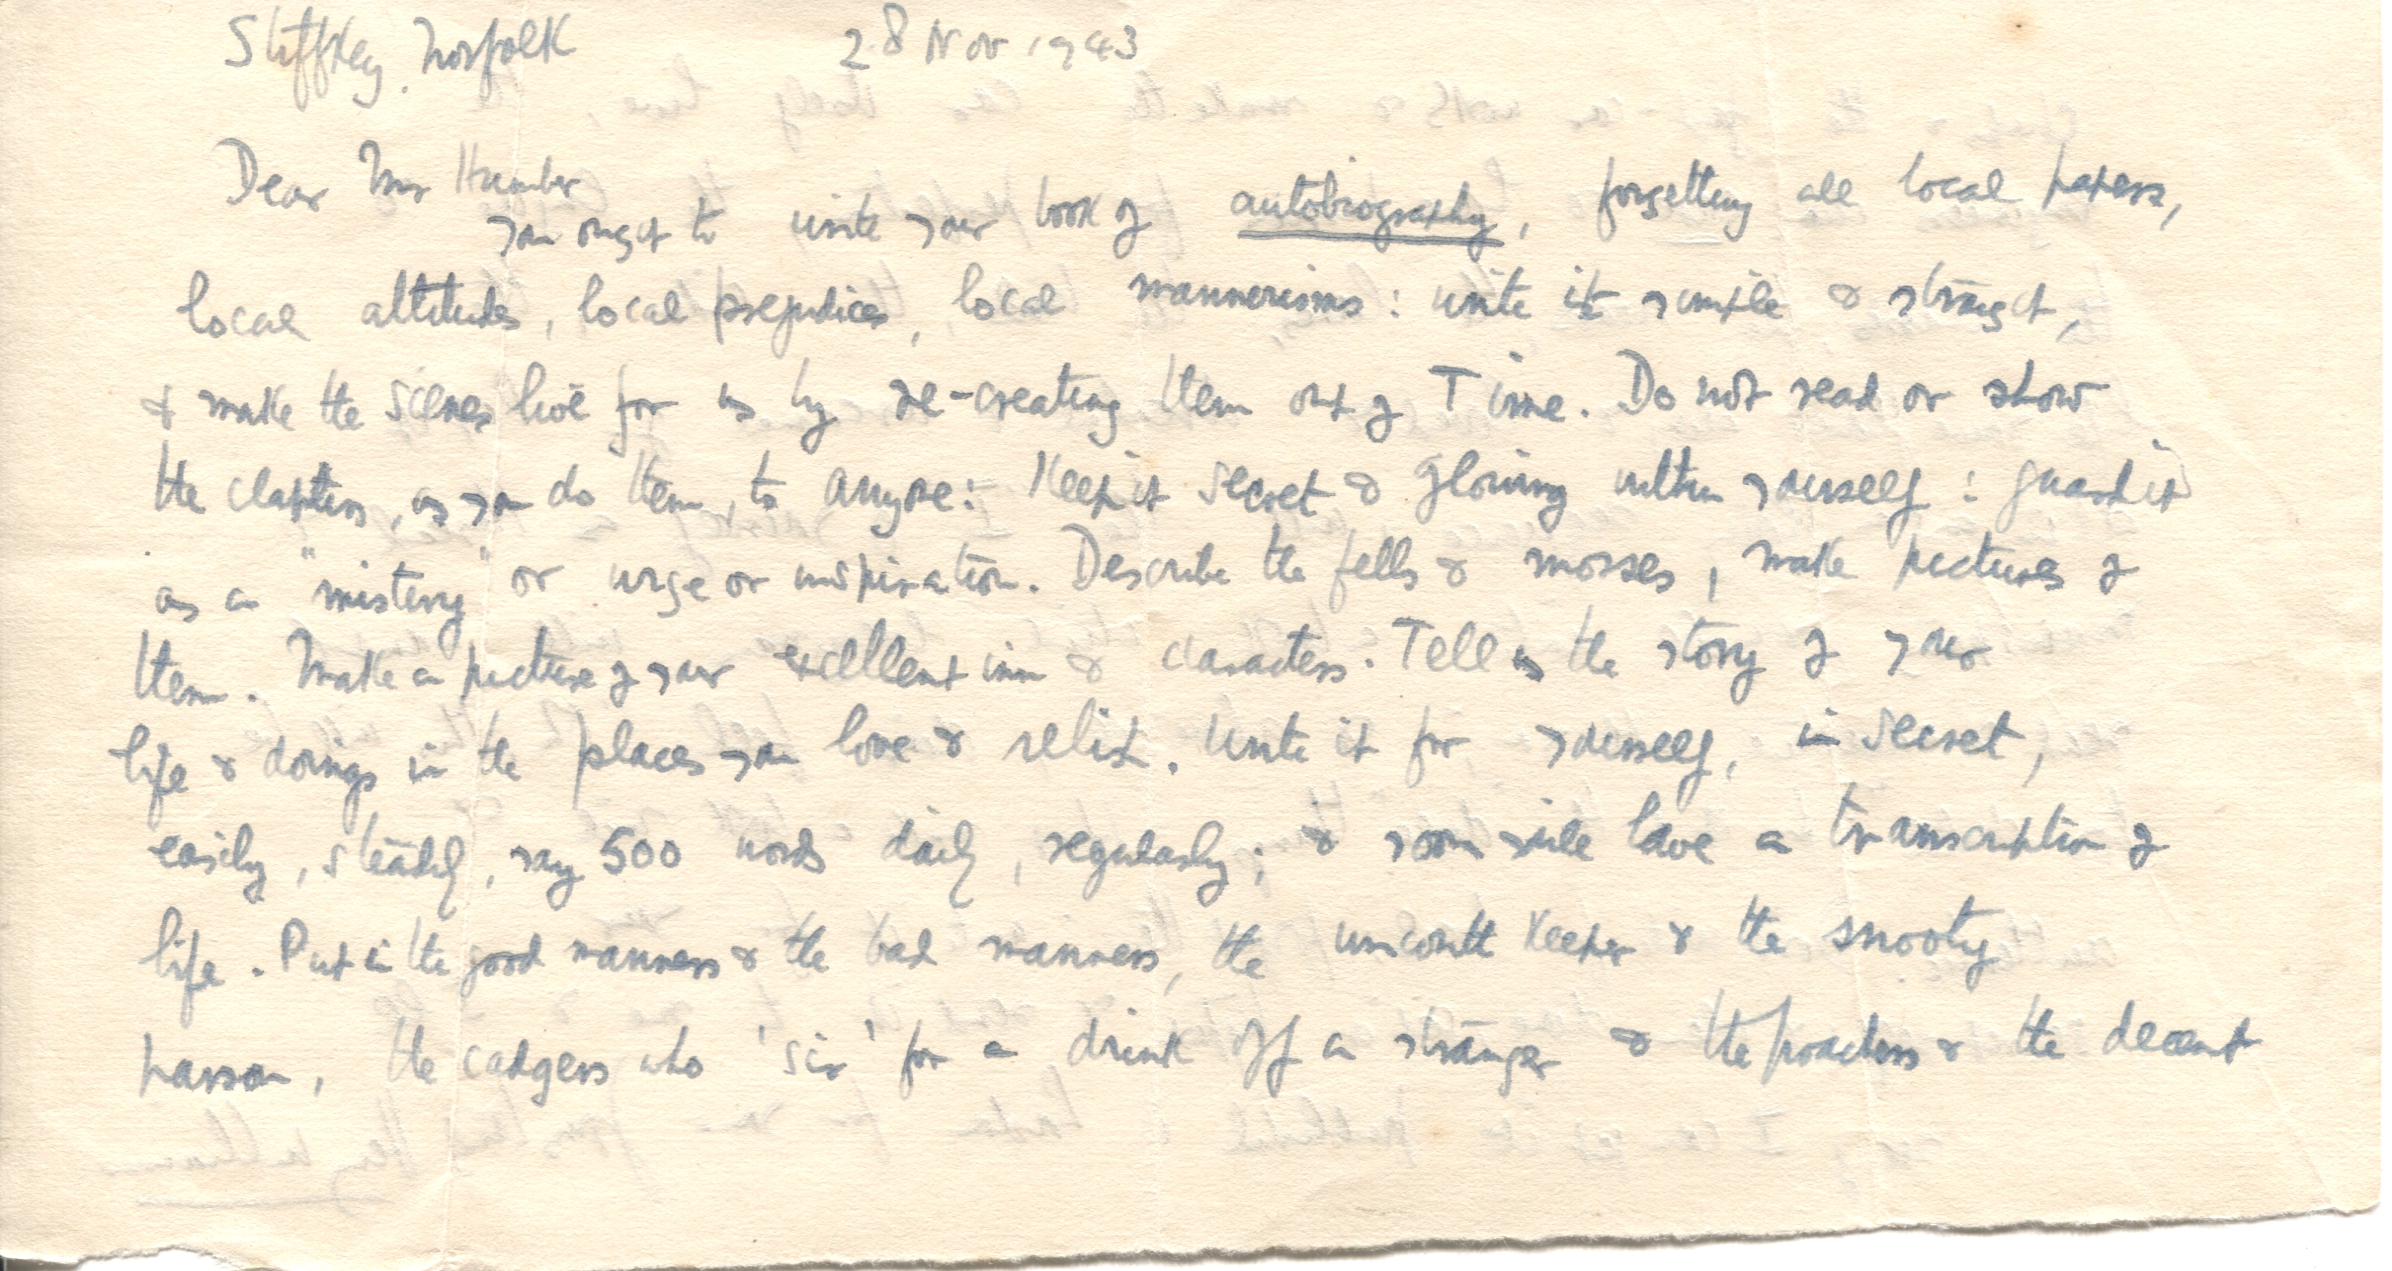 Stiffkey, Norfolk 28 Nov 1943
Dear Mr Humber
you ought to write your book of autobiography, forgetting all local papers,
local attitudes, local prejudices, local mannerisms: write it simple & straight,
& make the scenes live for us by re-creating them out of Time. Do not read or show
the chapters, as you do them, to anyone: Keep it secret & glowing within yourself: guard it
as a "mistery" or urge or inspiration. Describe the fells & mosses, make pictures of
them. Make a picture of your excellent inn & characters. Tell us the story of your
life & doings in the places you love & relish. Write it for yourself, in secret,
easily, steadily, say 500 words daily, regularly; & soon will have a transcription of
life. Put in the good manners & the bad manners, the uncouth keeper & the snooty
parson, the cadgers who 'sir' for a drink off a stranger & the poachers & the decent